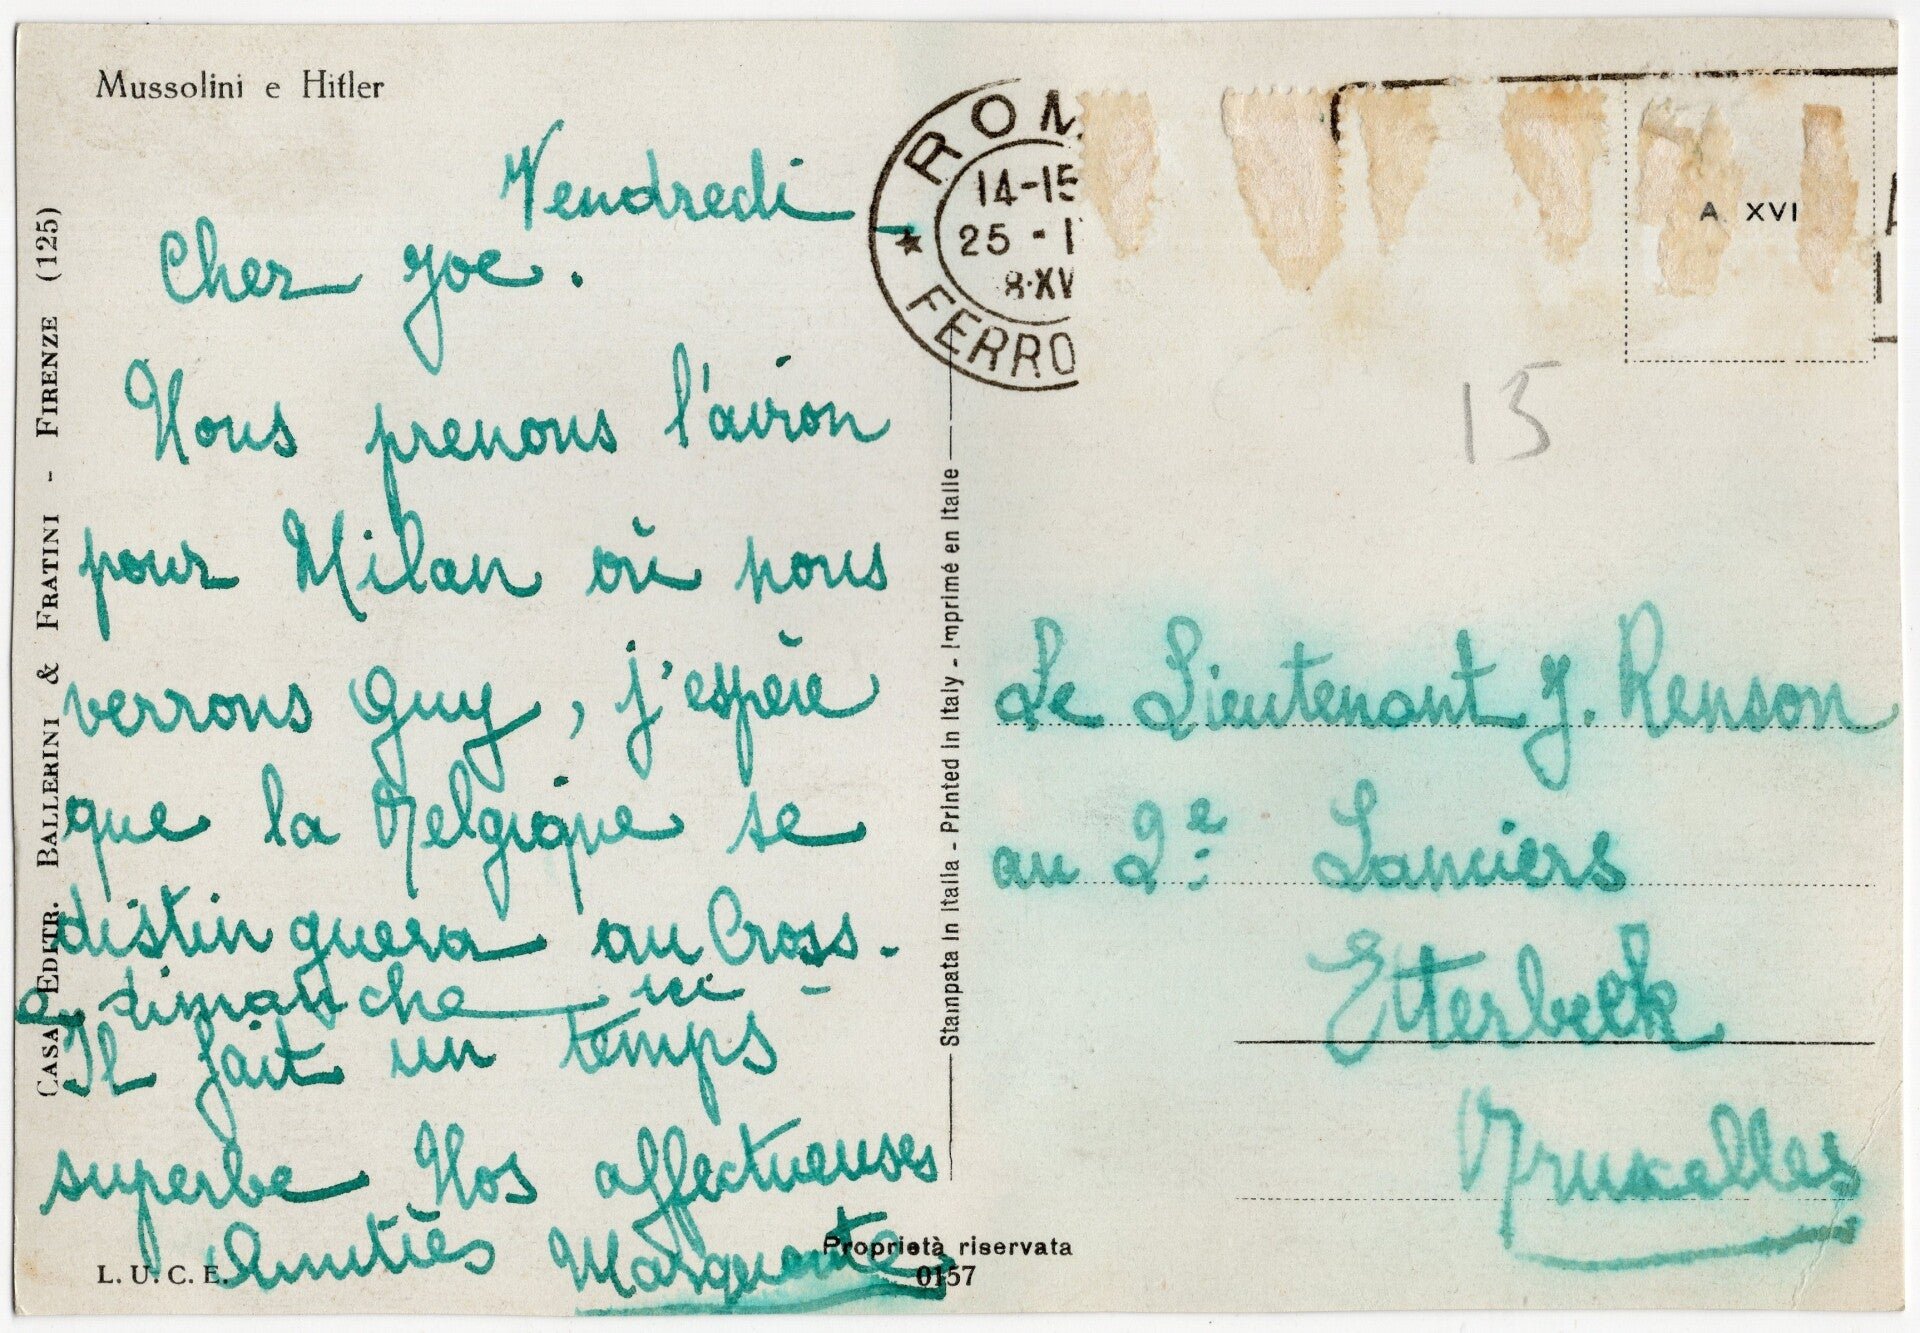 Mussolini e Hitler
Vendredi
Cher Joe.
Nous prenons l'avion
pour Milan où nous
verrons Guy, j'espère
que la Belgique se
distinguera au Cross-
dimanche ici -
Il fait un temps
superbe Nos affectueuses
Amitiès Marguerite
L. U. C. E.
(CASA EDITR. BALLERINI & FRATINI - FIRENZE (125)
Stampata in Italia - Printed in Italy - Imprimé en Italie
Proprietà riservata
0157
ROM
14-15
25 - I
8·XV
FERRO
A XVI
15
Le Lieutenant J. Renson
au 2e Lanciers
Etterbeek
Bruxelles